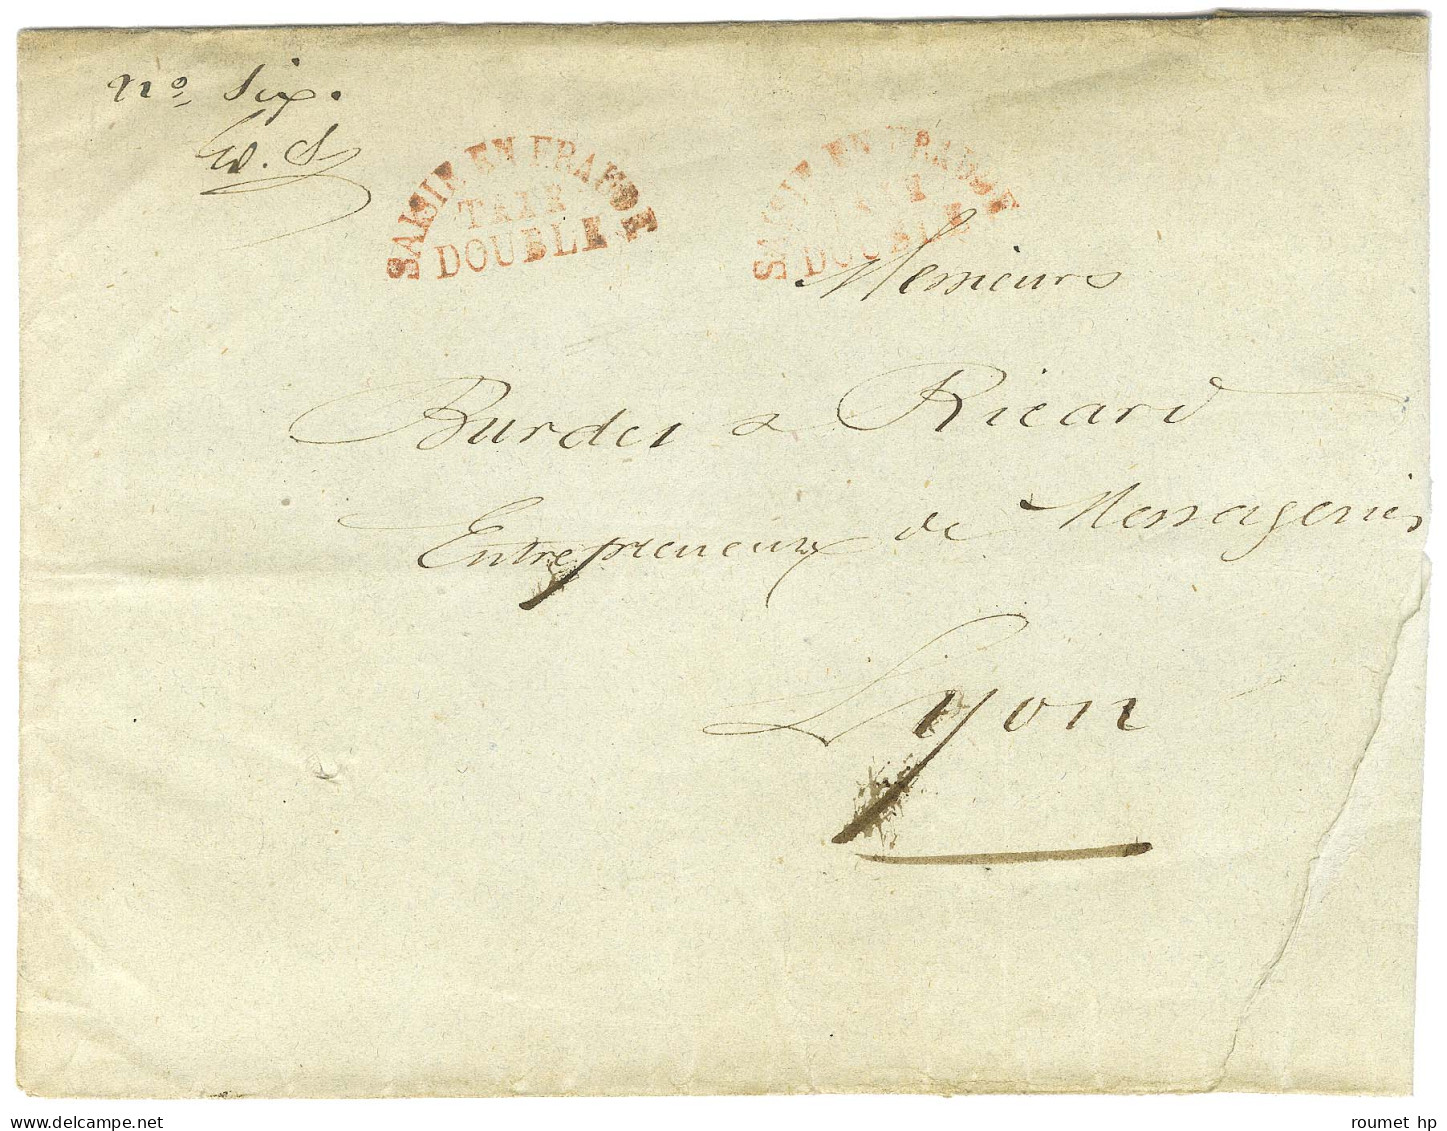 no six.
SAISIE EN FRAUDE
TAXE
DOUBLE
SAISIE EN FRAUDE
TAXE
DOUBLE
Messieurs
Burdet & Ricard
Entrepreneurs de Messageries
Lyon
roumet hp